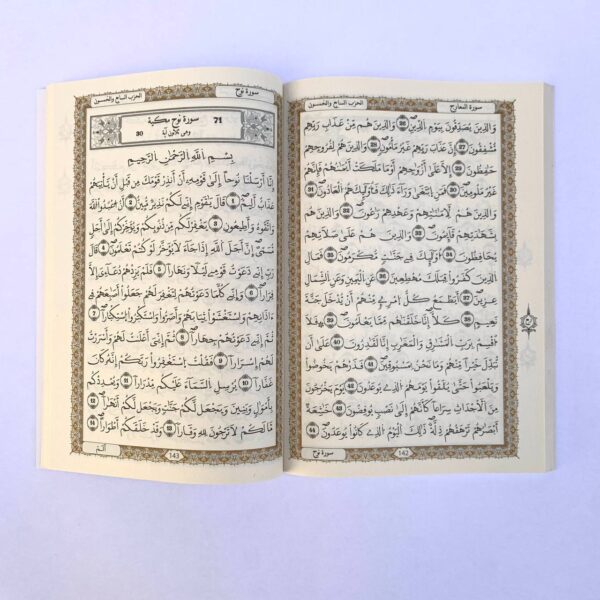 سورة المعارج
الحزب السابع والخمسون
وَالذِينَ يُصَدِّقُونَ بِيَوْمِ الدِّينِ 26 وَالذِينَ هُم مِّنْ عَذَابِ رَبِّهِم
مُّشْفِقُونَ 27 إِنَّ عَذَابَ رَبِّهِمْ غَيْرُ مَامُونٍ 28 وَالذِينَ هُمْ لِفُرُوجِهِمْ
حَٰفِظُونَ 29 إِلَّا عَلَىٰ أَزْوَٰجِهِمُۥ أَوْ مَا مَلَكَتَ اَيْمَٰنُهُمْ فَإِنَّهُمْ
غَيْرُ مَلُومِينَ 30 فَمَنِ اِبْتَغَىٰ وَرَآءَ ذَٰلِكَ فَأُوْلَٰٓئِكَ هُمُ الْعَادُونَ 31
وَالذِينَ هُمْ لِأَمَٰنَٰتِهِمْ وَعَهْدِهِمْ رَٰعُونَ 32 وَالذِينَ هُم
بِشَهَٰدَتِهِمْ قَآئِمُونَ 33 وَالذِينَ هُمْ عَلَىٰ صَلَاتِهِمْ
يُحَافِظُونَ 34 أُوْلَٰٓئِكَ فِي جَنَّٰتٍ مُّكْرَمُونَ 35 فَمَالِ
الذِينَ كَفَرُواْ قِبَلَكَ مُهْطِعِينَ 36 عَنِ الْيَمِينِ وَعَنِ الشِّمَالِ
عِزِينَ 37 أَيَطْمَعُ كُلُّ امْرِۓٍ مِّنْهُمُۥ أَنْ يُّدْخَلَ جَنَّةَ
نَعِيمٍ 38 كَلَّا إِنَّا خَلَقْنَٰهُم مِّمَّا يَعْلَمُونَ 39 فَلَا
أُقْسِمُ بِرَبِّ الْمَشَٰرِقِ وَالْمَغَٰرِبِ إِنَّا لَقَٰدِرُونَ 40 عَلَىٰ أَن
نُّبَدِّلَ خَيْراً مِّنْهُمْ وَمَا نَحْنُ بِمَسْبُوقِينَ 41 فَذَرْهُمْ يَخُوضُواْ
وَيَلْعَبُواْ حَتَّىٰ يُلَٰقُواْ يَوْمَهُمُ الذِي يُوعَدُونَ 42 يَوْمَ يَخْرُجُونَ
مِنَ الْأَجْدَاثِ سِرَاعاً كَأَنَّهُمُۥ إِلَىٰ نَصْبٍ يُوفِضُونَ 43 خَٰشِعَةً
اَبْصَٰرُهُمْ تَرْهَقُهُمْ ذِلَّةٌ ذَٰلِكَ الْيَوْمُ الذِي كَانُواْ يُوعَدُونَ 44
سورة نوح
142
سورة نوح
الحزب السابع والخمسون
71 سورة نوح مكية
وهي ثلاثون آية 30
بِسْمِ اللَّهِ الرَّحْمَٰنِ الرَّحِيمِ
إِنَّا أَرْسَلْنَا نُوحاً اِلَىٰ قَوْمِهِۦٓ أَنَ اَنذِرْ قَوْمَكَ مِن قَبْلِ أَنْ يَّأْتِيَهُمْ
عَذَابٌ اَلِيمٌ 1 قَالَ يَٰقَوْمِ إِنِّي لَكُمْ نَذِيرٌ مُّبِينٌ 2 أَنُ اعْبُدُواْ اللَّهَ
وَاتَّقُوهُ وَأَطِيعُونِ 3 يَغْفِرْ لَكُم مِّن ذُنُوبِكُمْ وَيُؤَخِّرْكُمُۥ إِلَىٰ أَجَلٍ
مُّسَمًّى اِنَّ أَجَلَ اللَّهِ إِذَا جَآءَ لَا يُؤَخَّرُ لَوْ كُنتُمْ تَعْلَمُونَ 4 قَالَ
رَبِّ إِنِّي دَعَوْتُ قَوْمِي لَيْلاً وَنَهَاراً 5 فَلَمْ يَزِدْهُمْ دُعَآءِيَ إِلَّا
فِرَاراً 6 وَإِنِّي كُلَّمَا دَعَوْتُهُمْ لِتَغْفِرَ لَهُمْ جَعَلُواْ أَصَٰبِعَهُمْ فِي
ءَاذَانِهِمْ وَاسْتَغْشَوْاْ ثِيَابَهُمْ وَأَصَرُّواْ وَاسْتَكْبَرُواْ اسْتِكْبَاراً 7
ثُمَّ إِنِّي دَعَوْتُهُمْ جِهَاراً 8 ثُمَّ إِنِّيَ أَعْلَنتُ لَهُمْ وَأَسْرَرْتُ
لَهُمُۥ إِسْرَاراً 9 فَقُلْتُ اسْتَغْفِرُواْ رَبَّكُمُۥ إِنَّهُۥ كَانَ
غَفَّاراً 10 يُرْسِلِ السَّمَآءَ عَلَيْكُم مِّدْرَاراً 11 وَيُمْدِدْكُم
بِأَمْوَٰلٍ وَبَنِينَ وَيَجْعَل لَّكُمْ جَنَّٰتٍ وَيَجْعَل لَّكُمُۥ أَنْهَٰراً 12
مَّا لَكُمْ لَا تَرْجُونَ لِلَّهِ وَقَاراً 13 وَقَدْ خَلَقَكُمُۥ أَطْوَاراً 14
أَلَمْ
143